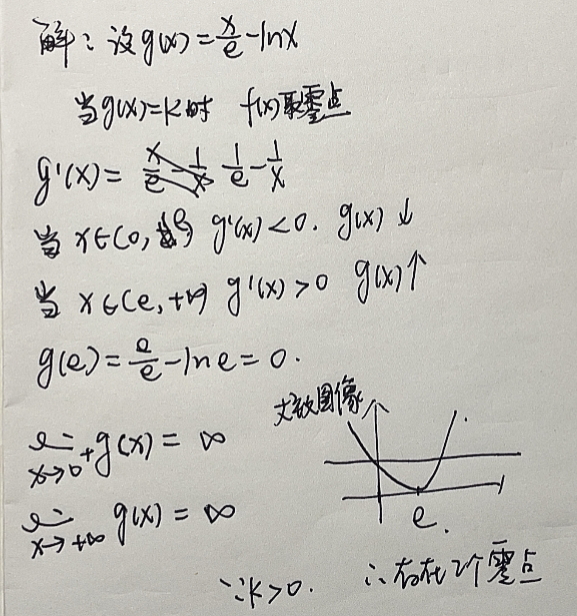 解：设g(x)=x/e-lnx
当g(x)=k时 f(x)取零点
g'(x)= 1/e-1/x
当 x∈(0,e) g'(x)<0. g(x)↓
当 x∈(e,+∞) g'(x)>0 g(x)↑
g(e)=e/e-lne=0.
大致图像
lim x→0+ g(x)=∞
lim x→+∞ g(x)=∞
e.
∵k>0. ∴存在2个零点